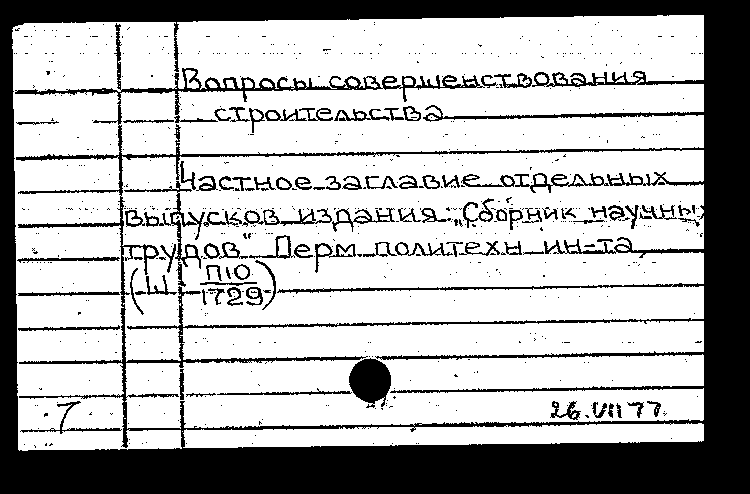 Вопросы совершенствования
строительства
Частное заглавие отдельных
выпусков издания: „Сборник научны
трудов" Перм политехн ин-та
(Ш П10
1729)
7
26.VII 77.